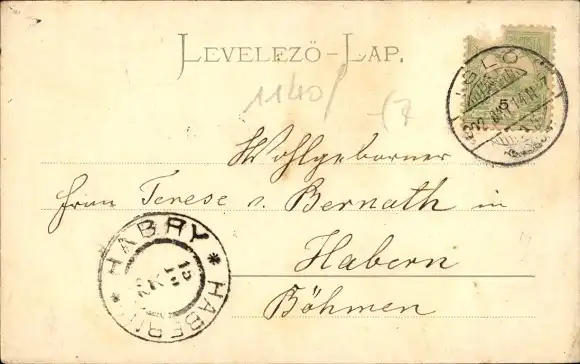 LEVELEZŐ-LAP.
1140/
IGLÓ
5
Wohlgeborner
Frau Terese v. Bernath in
Habern
Böhmen
HABRY * HABERN *